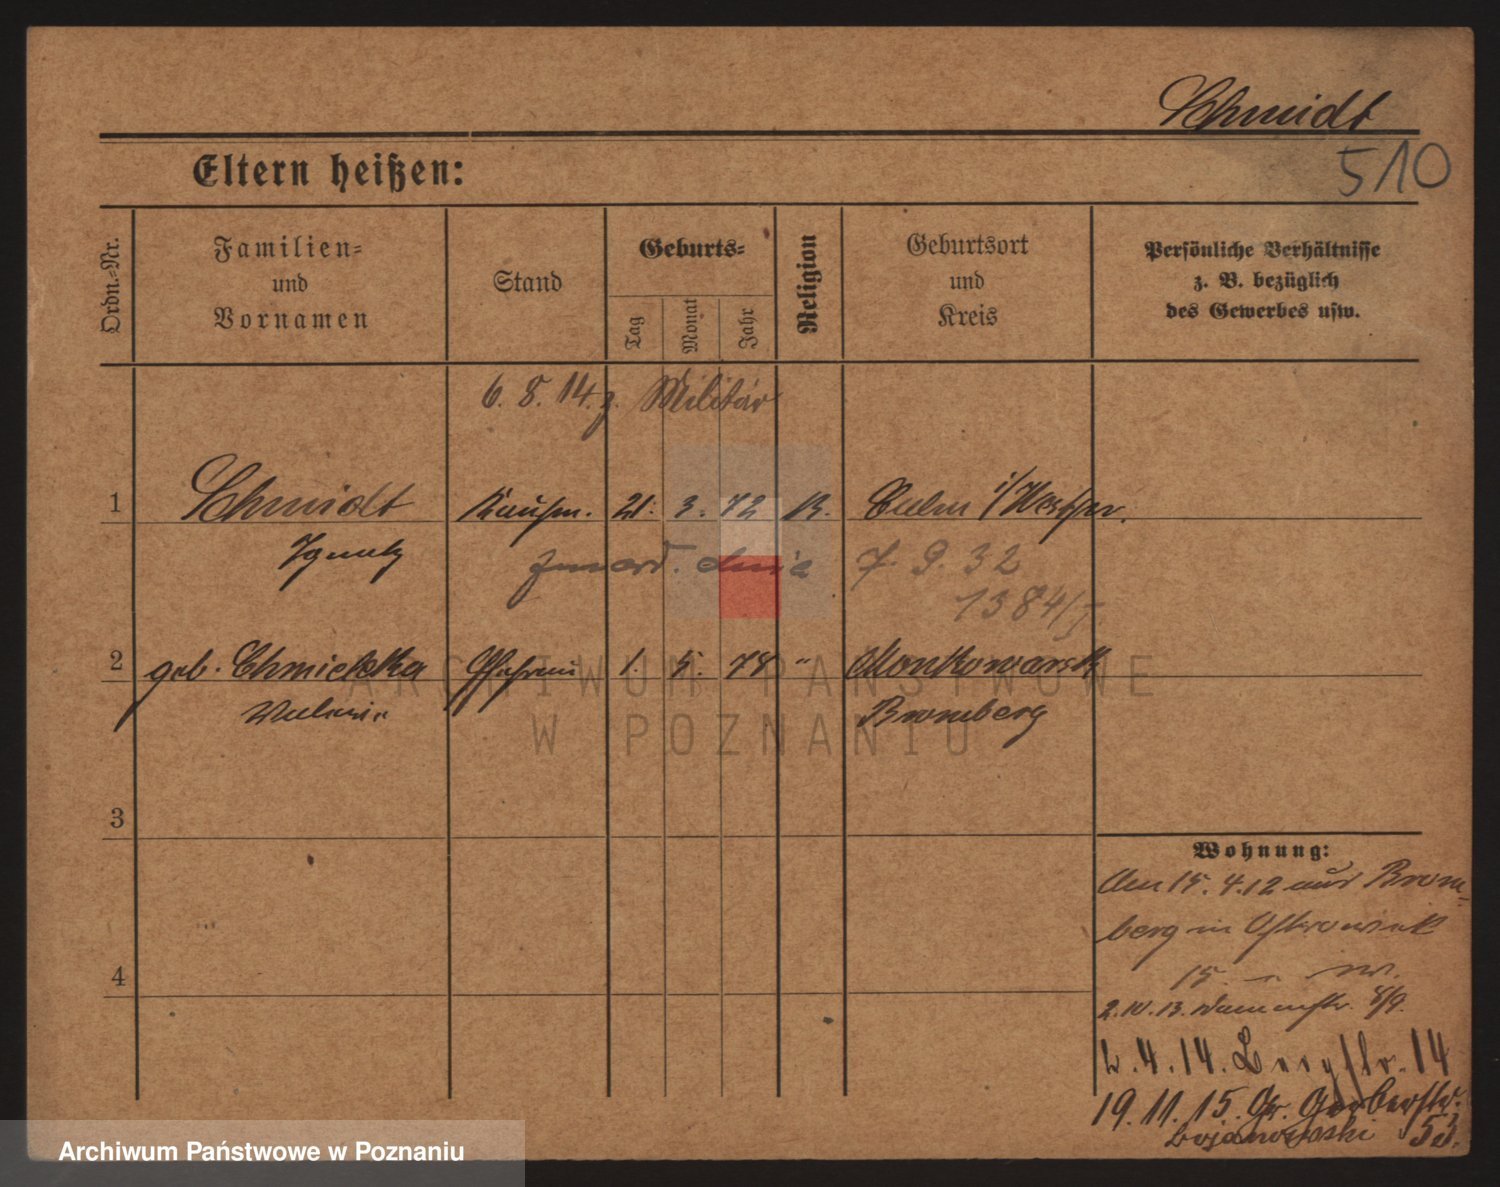 Schmidt
510
Eltern heißen:
Ordn.-Nr.
Familien-
und
Vornamen
Stand
Geburts-
Tag
Monat
Jahr
Religion
Geburtsort
und
Kreis
Persönliche Verhältnisse
z. B. bezüglich
des Gewerbes usw.
6. 8. 14. z. Militär
1 Schmidt Kaufm. 21. 3. 72 K. Culm i/Westpr.
Ignatz
7. 9. 32
1384/
2 geb. Ehefrau 1. 5. 78 "
Bromberg
ARCHIWUM PAŃSTWOWE
W POZNANIU
3
4
Wohnung:
15. 4. 12 aus Brom-
berg in
15.
2. 10. 13. 8/9.
4. 14. 14
19. 11. 15. Gr. Gerberstr.
Bojanowski 53.
Archiwum Państwowe w Poznaniu